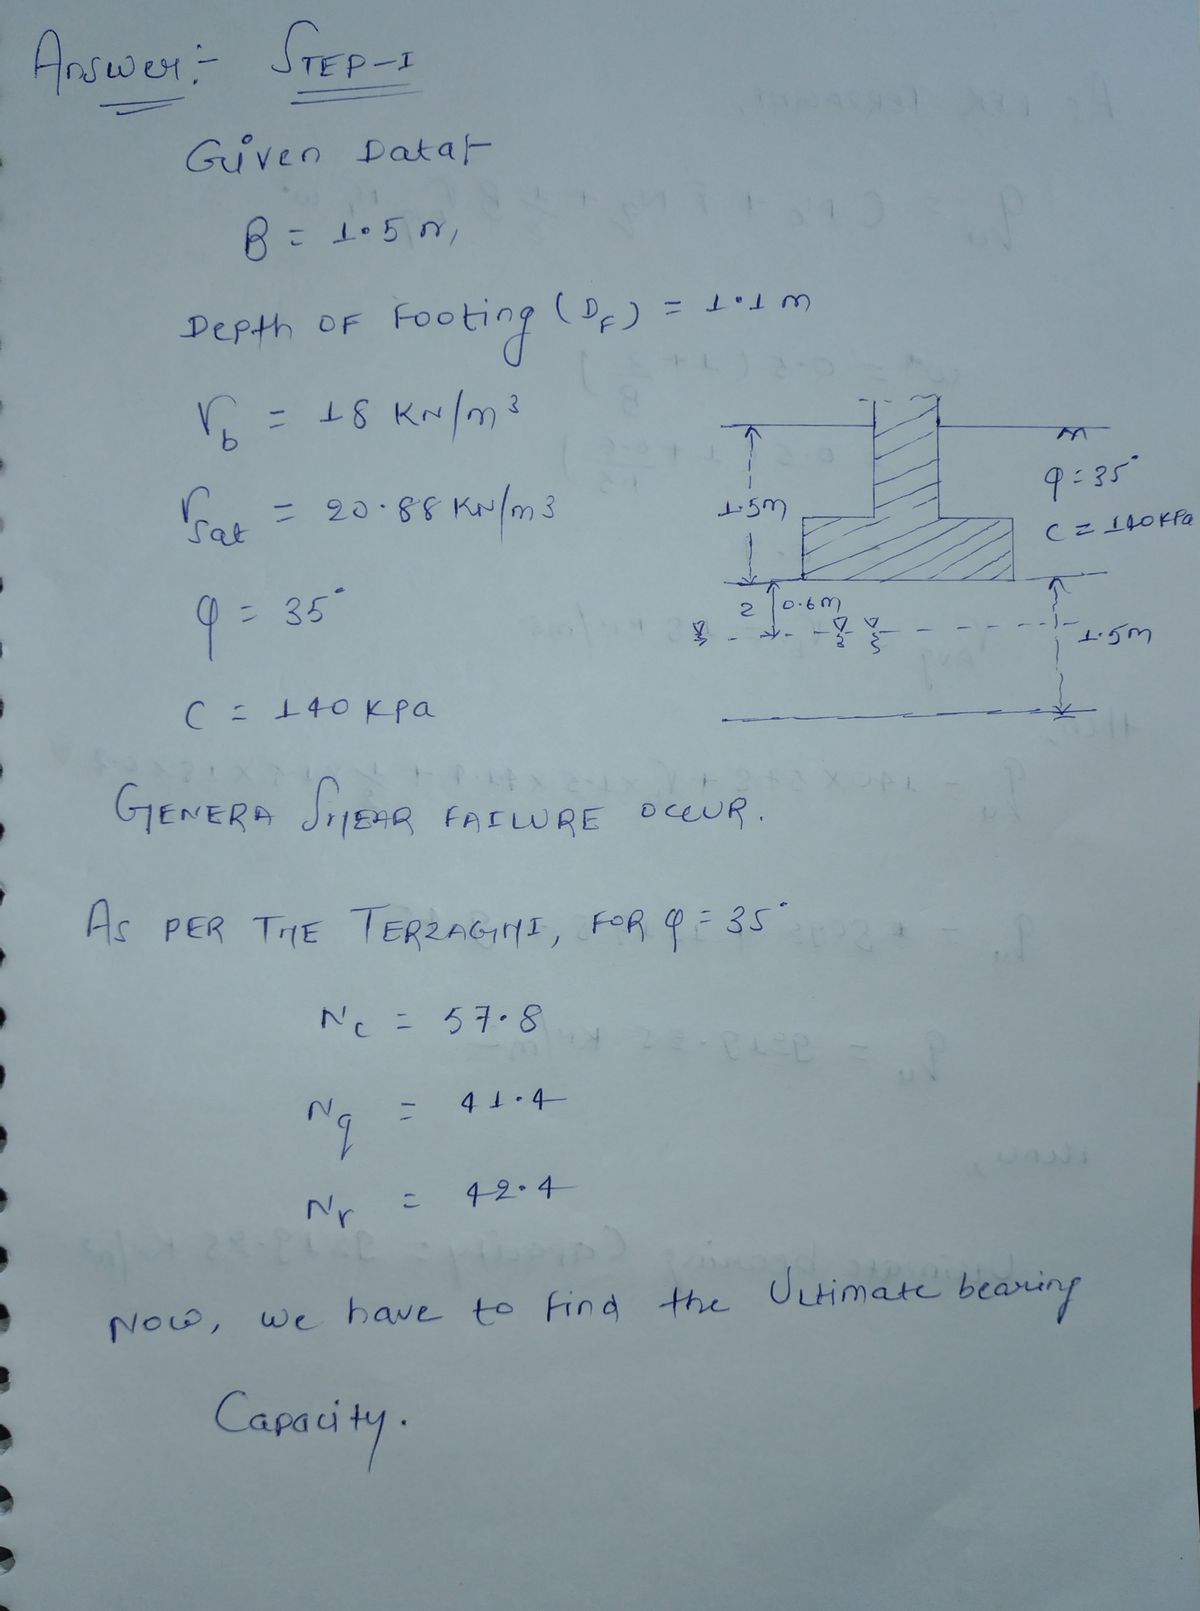 Answer:- STEP-I
Given Data:-
B = 1.5 m,
Depth OF Footing (D_F) = 1.1 m
γ_b = 18 KN/m³
γ_sat = 20.88 KN/m3
φ = 35°
C = 140 kpa
1.5m
φ = 35°
C = 140 KPa
Z 0.6m
1.5m
GENERA SHEAR FAILURE OCCUR.
AS PER THE TERZAGHI, FOR φ = 35°
N'c = 57.8
Nq = 41.4
Nr = 42.4
NOW, we have to find the Ultimate bearing
Capacity.